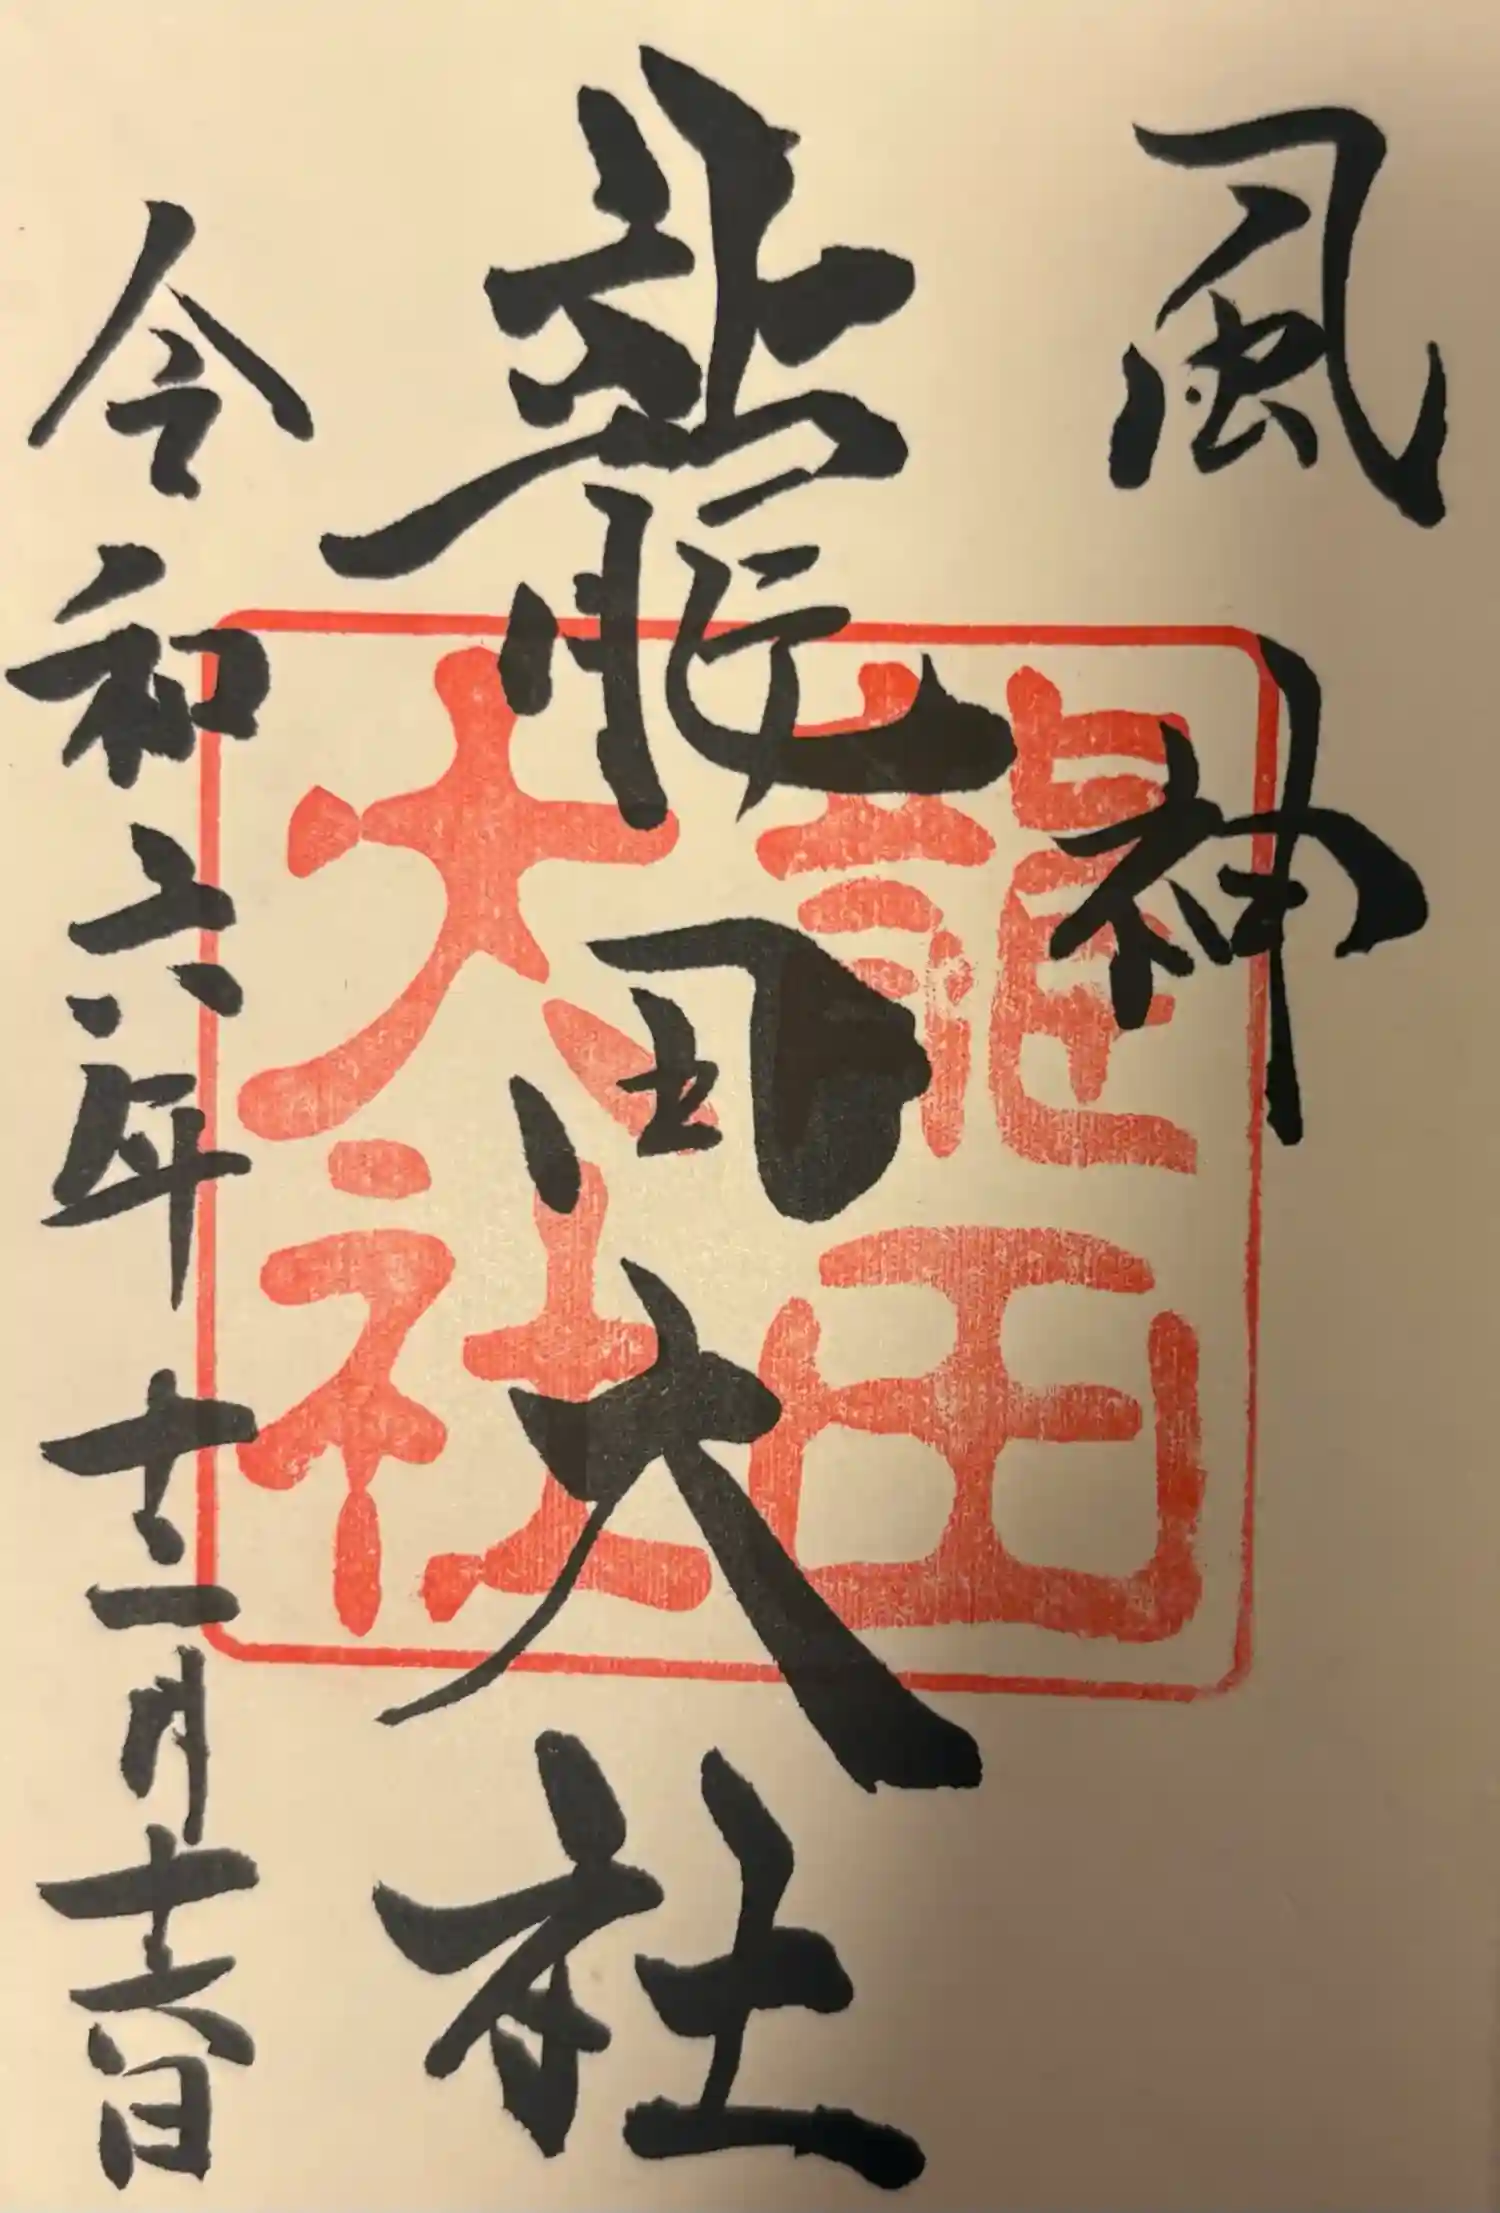 風神
龍田大社
令和六年十二月十六日
龍田
大社